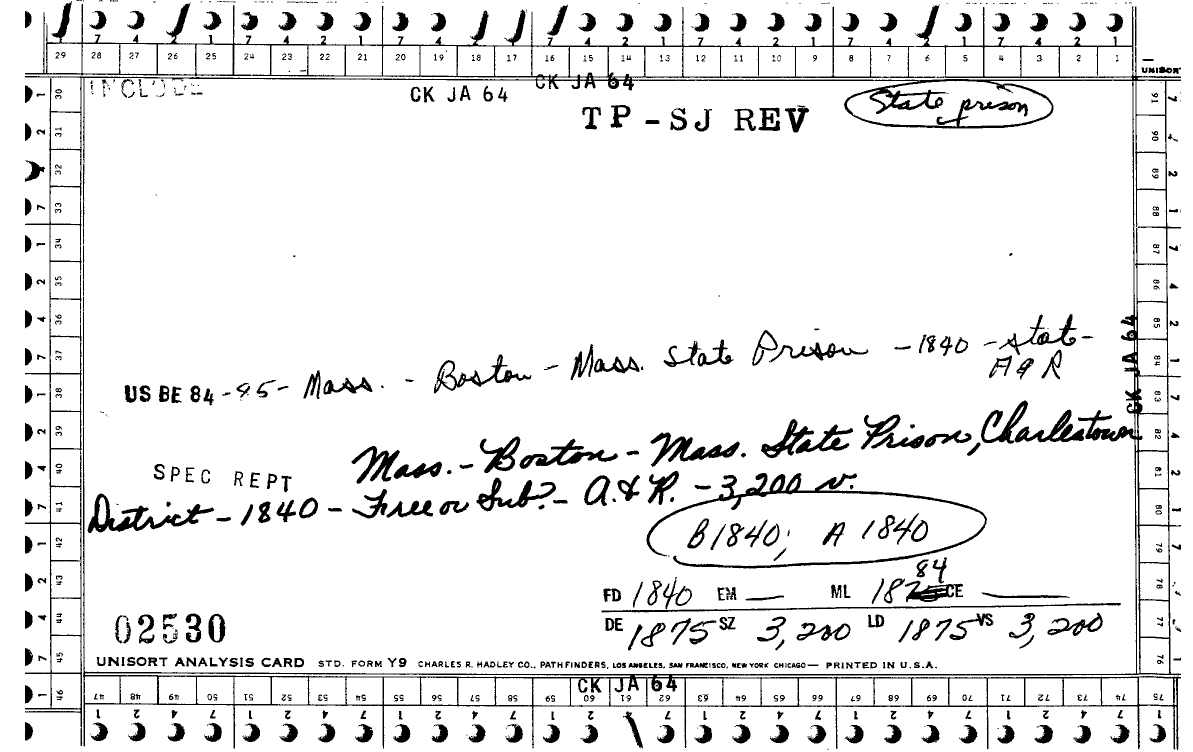 7 4 2 1 7 4 2 1 7 4 2 1 7 4 2 1 7 4 2 1 7 4 2 1 7 4 2 1
29 28 27 26 25 24 23 22 21 20 19 18 17 16 15 14 13 12 11 10 9 8 7 6 5 4 3 2 1
UNISORT
INCLUDE
CK JA 64
CK JA 64
TP - SJ REV
State prison
US BE 84 - 95 - Mass. - Boston - Mass. State Prison - 1840 - state -
A & R
CK JA 64
SPEC REPT
Mass. - Boston - Mass. State Prison, Charlestown
District - 1840 - Free or Sub? - A. & R. - 3,200 v.
B 1840; A 1840
84
FD 1840 EM — ML 187 CE —
DE 1875 SZ 3,200 LD 1875 VS 3,200
02530
UNISORT ANALYSIS CARD STD. FORM Y9 CHARLES R. HADLEY CO., PATHFINDERS, LOS ANGELES, SAN FRANCISCO, NEW YORK CHICAGO — PRINTED IN U.S.A.
CK JA 64
30 31 32 33 34 35 36 37 38 39 40 41 42 43 44 45 46
91 90 89 88 87 86 85 84 83 82 81 80 79 78 77 76 75
47 48 49 50 51 52 53 54 55 56 57 58 59 60 61 62 63 64 65 66 67 68 69 70 71 72 73 74
1 2 4 7 1 2 4 7 1 2 4 7 1 2 4 7 1 2 4 7 1 2 4 7 1 2 4 7